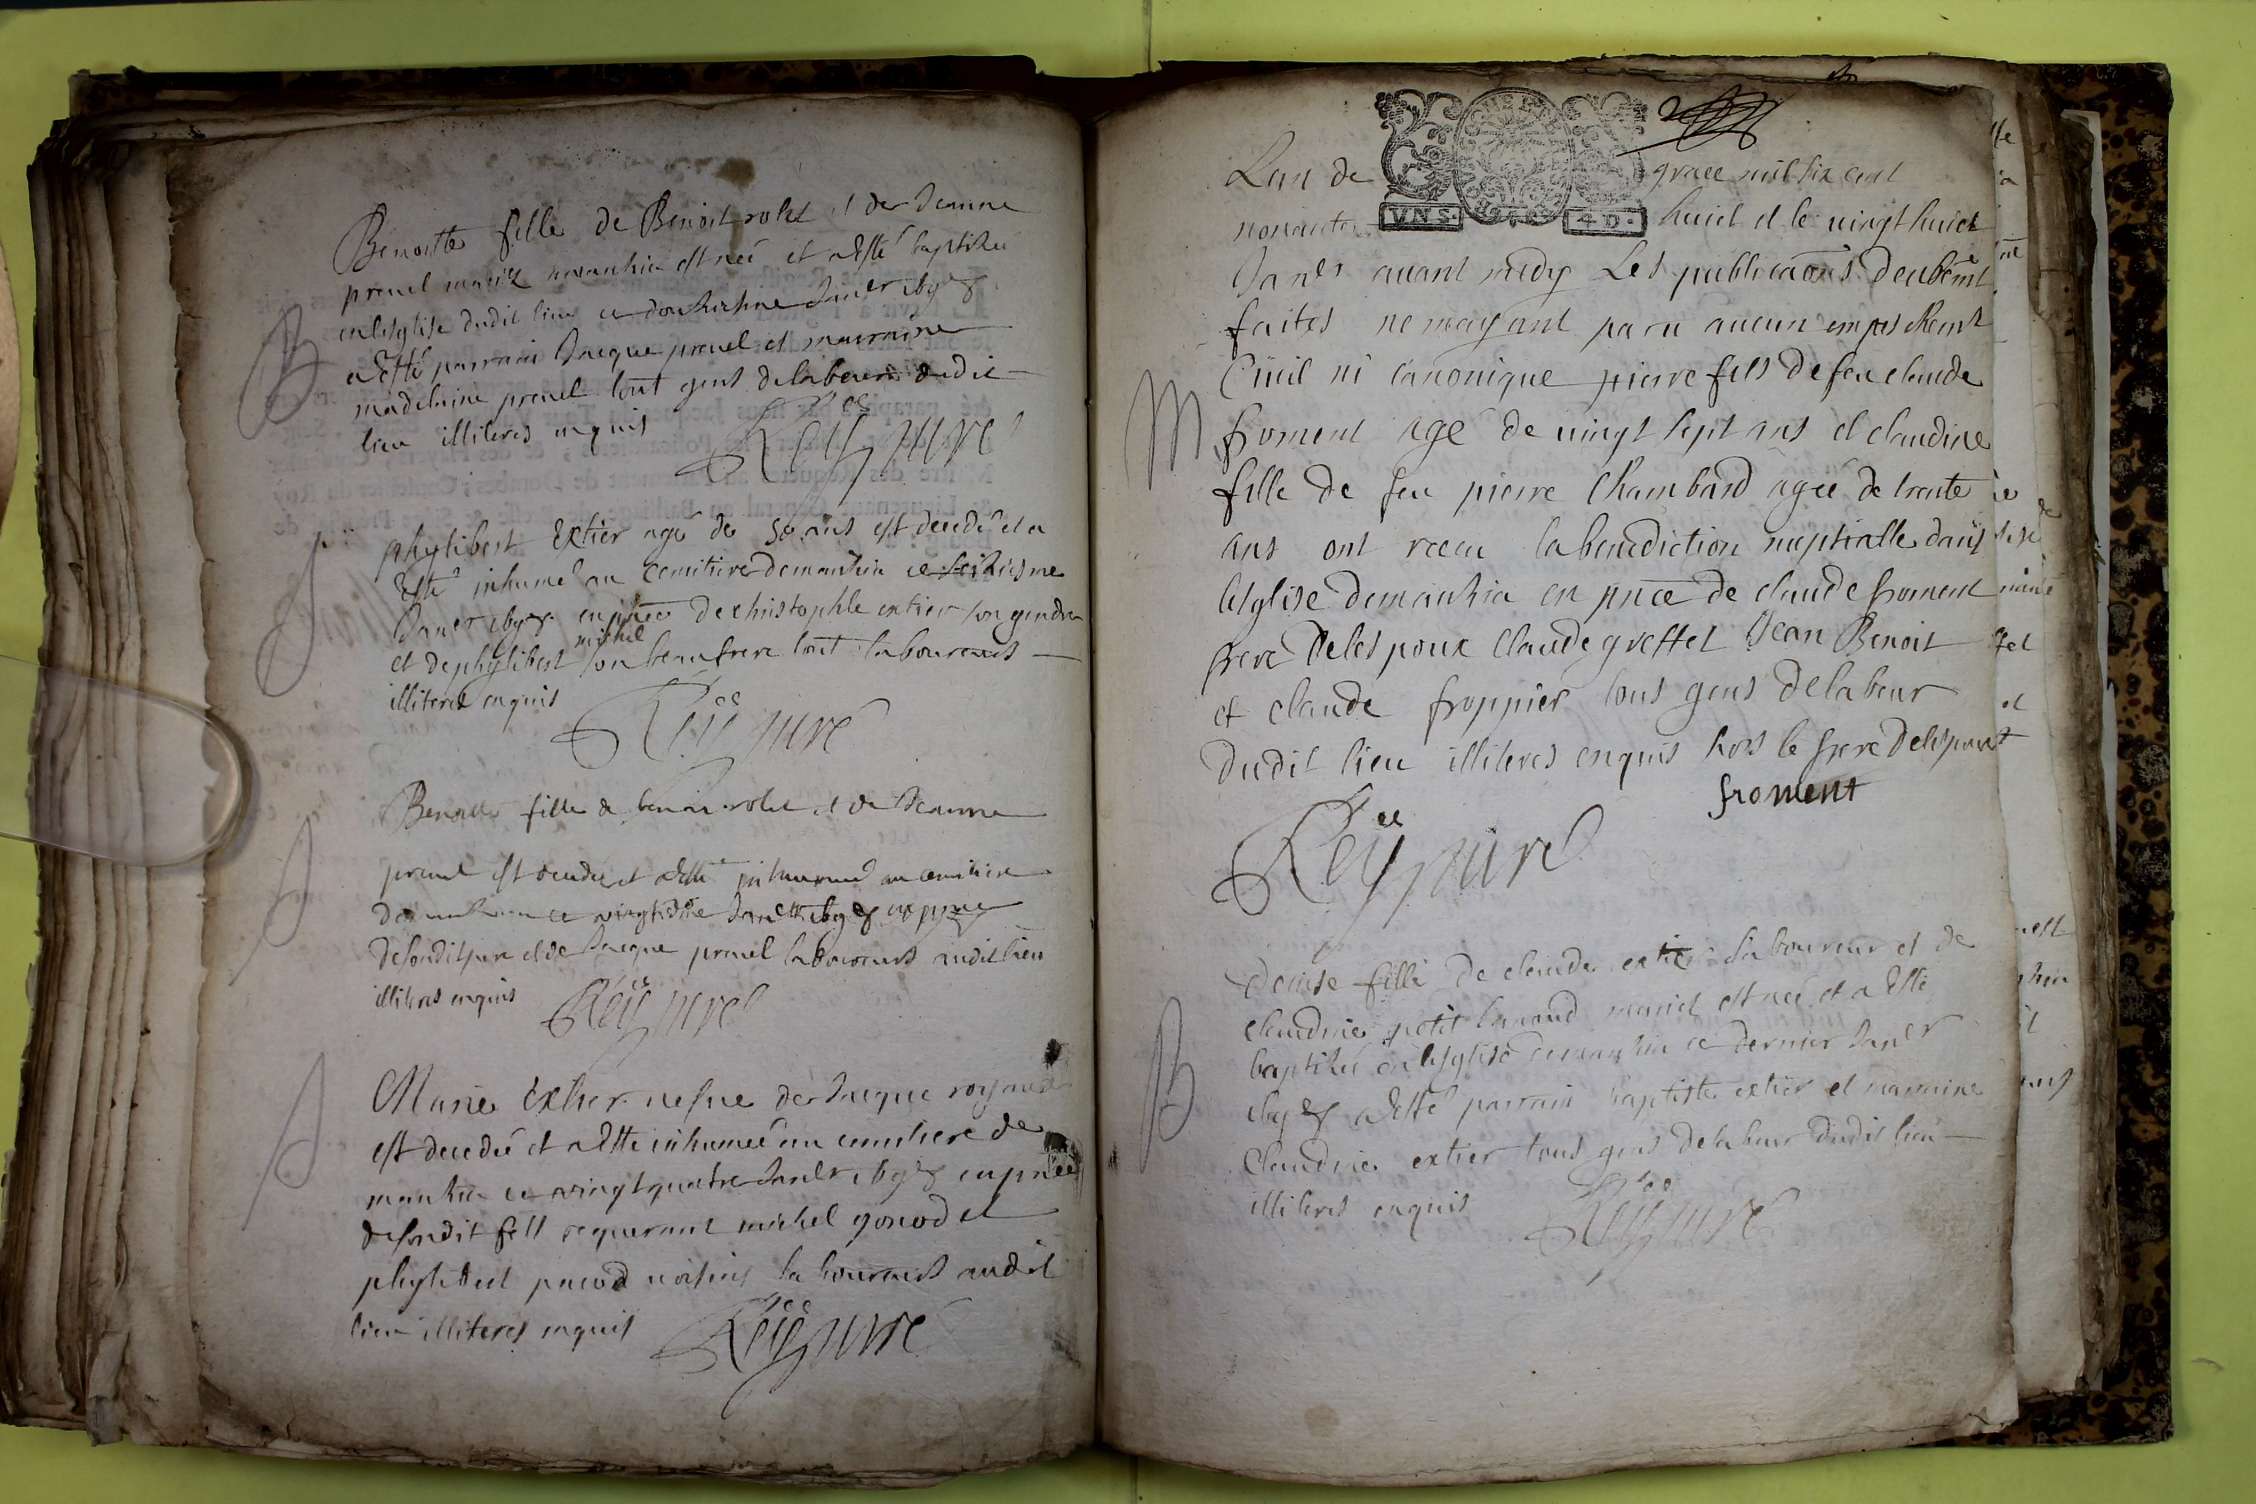 B
Benoitte fille de Benoit rolet et de Jeanne
prevel mariez manziat est née et a esté baptisée
en lesglise dudit lieu ce douziesme Janer
a esté parrain Jacque prevel et marraine
madelaine prevel tout gens de labeur dudit
lieu illiteres enquis
Reÿ curé
phylibert Extier agé de 50 ans est decedé et a
Esté inhumé au cemitiere de manzia ce seiziesme
Janer en pnce de christophle extier son gendre
michel
et de phylibert son beaufrere tout laboureurs
illiteres enquis
Reÿ curé
Benoitte fille de benoit rolet et de Jeanne
prevel est decedée et a esté inhumée au cemitiere
de manzia ce vingtiesme Janer
de sondit pere et de Jacque prevel laboureurs audit lieu
illiteres enquis
Reÿ curé
Marie Extier vefve de Jacque
est decedée et a esté inhumée au cemitiere de
manzia ce vingt quatre Janer en pnce
de sondit fils requerant michel gonod et
phylibert pacod voisins laboureurs audit
lieu illiteres enquis
Reÿ curé
Lan de grace mil six cent
VN S. 4 D.
nonante huict et le vingt huict
Janer avant midy Les publicaons deubemt
faites ne mayant paru aucun empeschemt
Civil ni canonique pierre fils de feu claude
M
froment agé de vingt sept ans et claudine
fille de feu pierre Chambard agée de trente
ans ont receu la benediction nuptialle dans
lesglise de manzia en pnce de claude froment
frere de lespoux Claude greffet Jean Benoit
et claude froppier tous gens de labeur
dudit lieu illiteres enquis hors le frere de lespoux
froment
Reÿ curé
B
denise fille de claude extier laboureur et de
claudine petit mariez est née et a esté
baptisée en lesglise de manzia ce dernier Janer
a esté parrain baptiste extier et marraine
Claudine extier tous gens de labeur dudit lieu
illiteres enquis
Reÿ curé